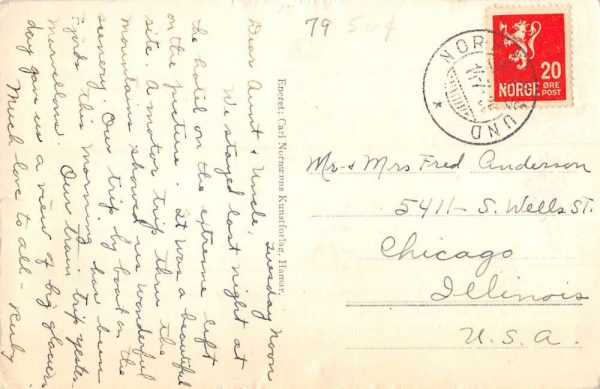 79 50¢
Tuesday Noon
Dear Aunt & Uncle,
We stayed last night at
the hotel on the extreme left
on the picture. It was a beautiful
site. A motor trip thru the
mountains showed us wonderful
scenery. Our trip by boat on the
Fjords this morning has been
marvellous. Our train trip yester-
day gave us a view of big glaciers.
Much love to all - Ruby
Eneret: Carl Normanns Kunstforlag, Hamar.
NOR
SUND
20
NORGE
ØRE
POST
Mr & Mrs Fred Anderson
5411- S. Wells ST.
Chicago
Illinois
U.S.A.